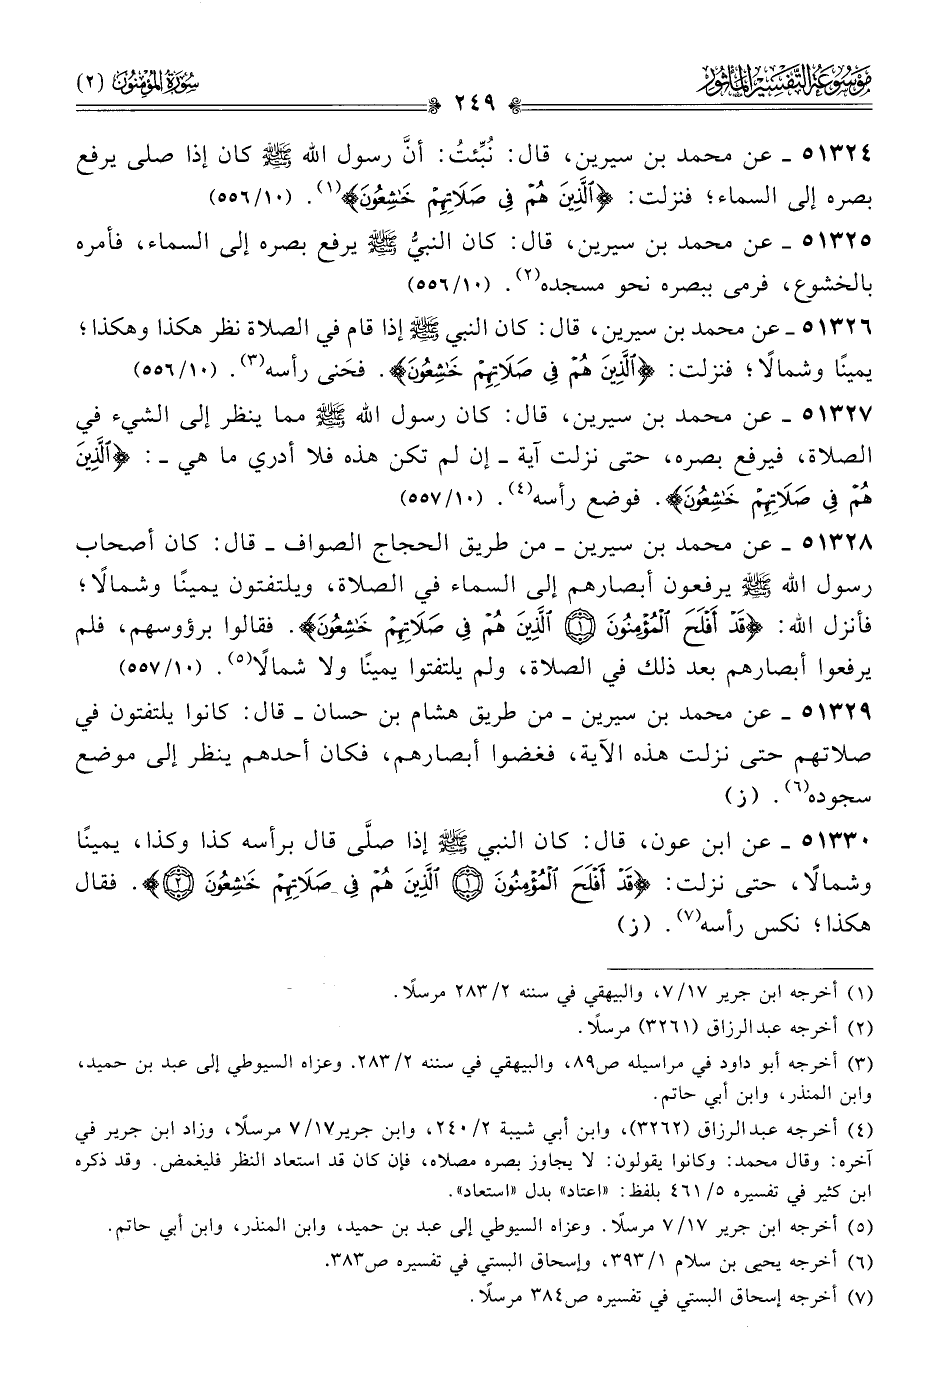 مَوْسُوعَةُ التَّفْسِيرِ المَأْثُورِ
سُورَةُ المُؤْمِنُونَ (٢)
٢٤٩
٥١٣٢٤ ـ عن محمد بن سيرين، قال: نُبِّئتُ: أنَّ رسول الله ﷺ كان إذا صلى يرفع
بصره إلى السماء؛ فنزلت: ﴿ٱلَّذِينَ هُمۡ فِي صَلَاتِهِمۡ خَٰشِعُونَ﴾(١). (١٠/٥٥٦)
٥١٣٢٥ ـ عن محمد بن سيرين، قال: كان النبيُّ ﷺ يرفع بصره إلى السماء، فأمره
بالخشوع، فرمى ببصره نحو مسجده(٢). (١٠/٥٥٦)
٥١٣٢٦ ـ عن محمد بن سيرين، قال: كان النبي ﷺ إذا قام في الصلاة نظر هكذا وهكذا؛
يمينًا وشمالًا؛ فنزلت: ﴿ٱلَّذِينَ هُمۡ فِي صَلَاتِهِمۡ خَٰشِعُونَ﴾. فحَنى رأسه(٣). (١٠/٥٥٦)
٥١٣٢٧ ـ عن محمد بن سيرين، قال: كان رسول الله ﷺ مما ينظر إلى الشيء في
الصلاة، فيرفع بصره، حتى نزلت آية ـ إن لم تكن هذه فلا أدري ما هي ـ: ﴿ٱلَّذِينَ
هُمۡ فِي صَلَاتِهِمۡ خَٰشِعُونَ﴾. فوضع رأسه(٤). (١٠/٥٥٧)
٥١٣٢٨ ـ عن محمد بن سيرين ـ من طريق الحجاج الصواف ـ قال: كان أصحاب
رسول الله ﷺ يرفعون أبصارهم إلى السماء في الصلاة، ويلتفتون يمينًا وشمالًا؛
فأنزل الله: ﴿قَدۡ أَفۡلَحَ ٱلۡمُؤۡمِنُونَ ۝١ ٱلَّذِينَ هُمۡ فِي صَلَاتِهِمۡ خَٰشِعُونَ﴾. فقالوا برؤوسهم، فلم
يرفعوا أبصارهم بعد ذلك في الصلاة، ولم يلتفتوا يمينًا ولا شمالًا(٥). (١٠/٥٥٧)
٥١٣٢٩ ـ عن محمد بن سيرين ـ من طريق هشام بن حسان ـ قال: كانوا يلتفتون في
صلاتهم حتى نزلت هذه الآية، فغضوا أبصارهم، فكان أحدهم ينظر إلى موضع
سجوده(٦). (ز)
٥١٣٣٠ ـ عن ابن عون، قال: كان النبي ﷺ إذا صلَّى قال برأسه كذا وكذا، يمينًا
وشمالًا، حتى نزلت: ﴿قَدۡ أَفۡلَحَ ٱلۡمُؤۡمِنُونَ ۝١ ٱلَّذِينَ هُمۡ فِي صَلَاتِهِمۡ خَٰشِعُونَ ۝٢﴾. فقال
هكذا؛ نكس رأسه(٧). (ز)
(١) أخرجه ابن جرير ١٧/٧، والبيهقي في سننه ٢/٢٨٣ مرسلًا.
(٢) أخرجه عبدالرزاق (٣٢٦١) مرسلًا.
(٣) أخرجه أبو داود في مراسيله ص٨٩، والبيهقي في سننه ٢/٢٨٣. وعزاه السيوطي إلى عبد بن حميد،
وابن المنذر، وابن أبي حاتم.
(٤) أخرجه عبدالرزاق (٣٢٦٢)، وابن أبي شيبة ٢/٢٤٠، وابن جرير١٧/٧ مرسلًا، وزاد ابن جرير في
آخره: وقال محمد: وكانوا يقولون: لا يجاوز بصره مصلاه، فإن كان قد استعاد النظر فليغمض. وقد ذكره
ابن كثير في تفسيره ٥/٤٦١ بلفظ: «اعتاد» بدل «استعاد».
(٥) أخرجه ابن جرير ١٧/٧ مرسلًا. وعزاه السيوطي إلى عبد بن حميد، وابن المنذر، وابن أبي حاتم.
(٦) أخرجه يحيى بن سلام ١/٣٩٣، وإسحاق البستي في تفسيره ص٣٨٣.
(٧) أخرجه إسحاق البستي في تفسيره ص٣٨٤ مرسلًا.